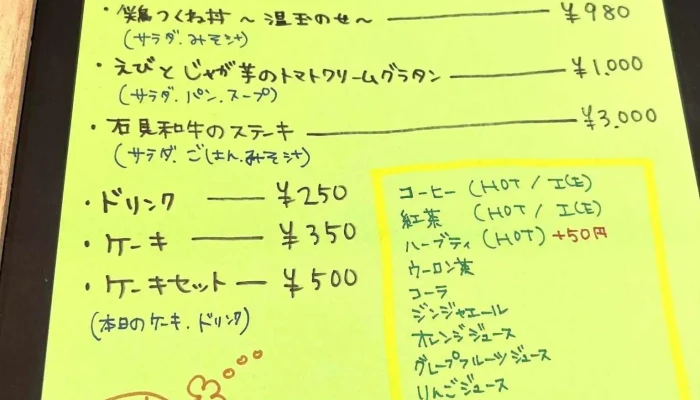 ・鶏つくね丼 〜温玉のせ〜 ¥980
(サラダ.みそ汁)
・えびとじゃが芋のトマトクリームグラタン ¥1.000
(サラダ.パン.スープ)
・石見和牛のステーキ ¥3.000
(サラダ.ごはん.みそ汁)
・ドリンク ¥250
・ケーキ ¥350
・ケーキセット ¥500
(本日のケーキ.ドリンク)
コーヒー (HOT / ICE)
紅茶 (HOT / ICE)
ハーブティ (HOT) +50円
ウーロン茶
コーラ
ジンジャエール
オレンジジュース
グレープフルーツジュース
りんごジュース